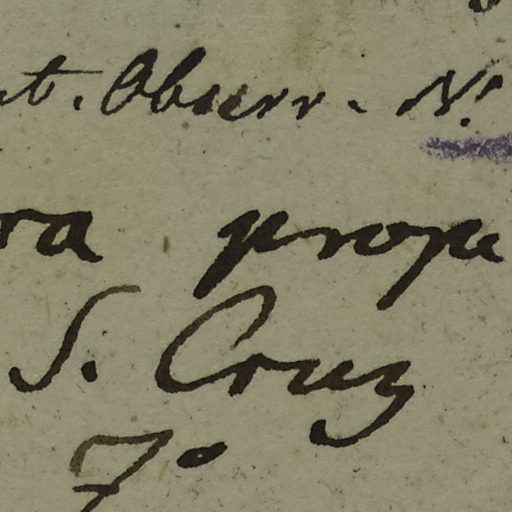 t. Observ. N.
ra prope
S. Cruz
7o